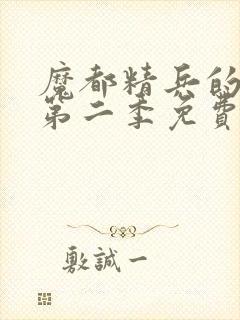 魔都精兵的
第二季免費
敷誠一